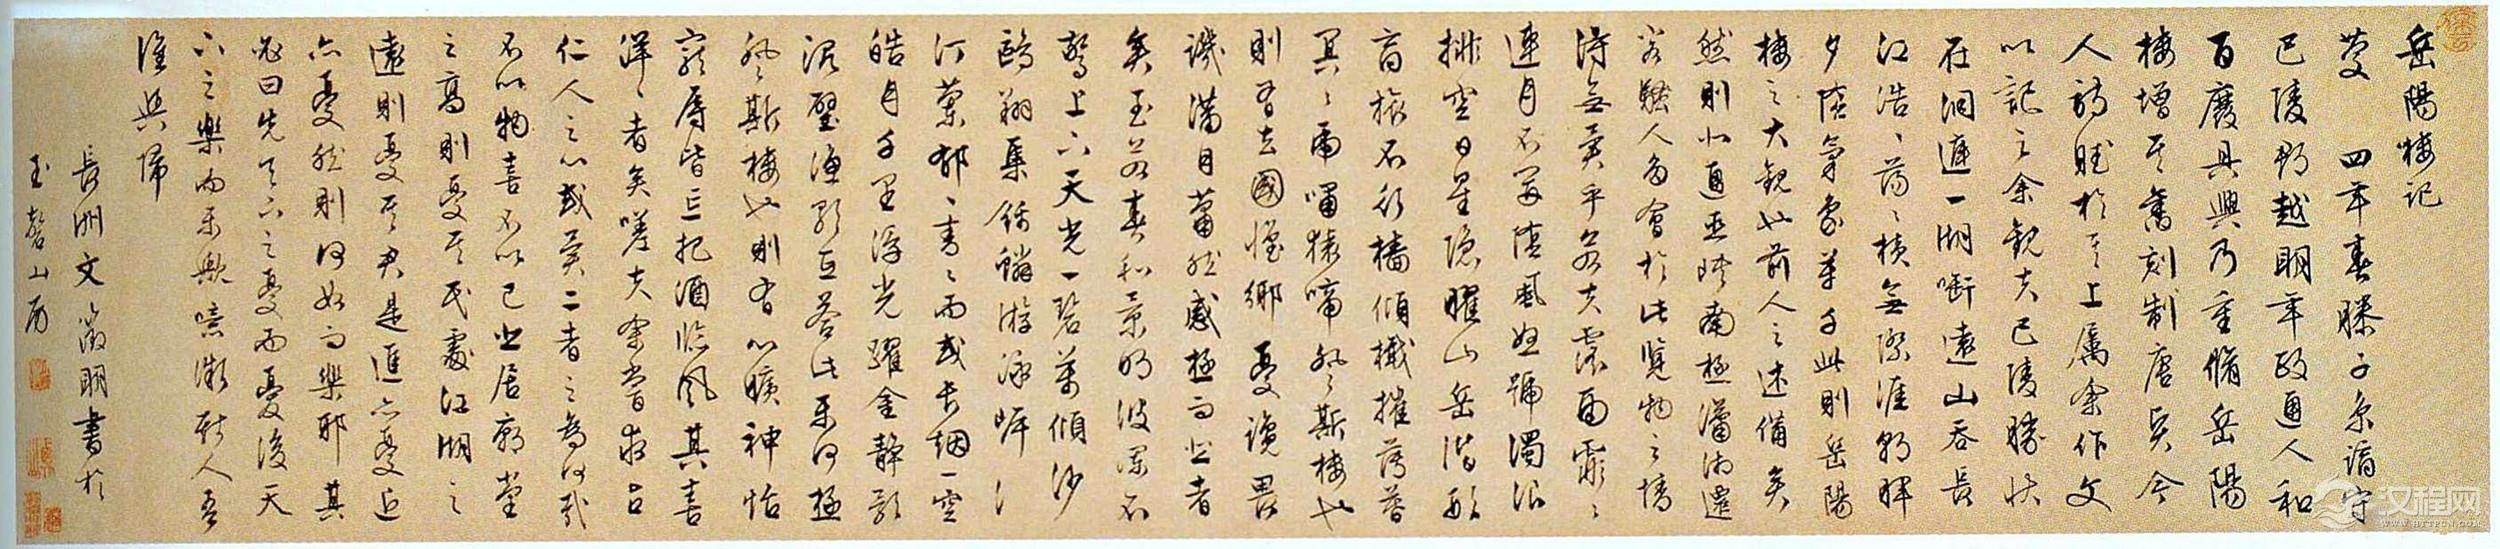 岳陽樓記
慶 四年春滕子京謫守
巴陵郡越明年政通人和
百廢具興乃重脩岳陽
樓增其舊刻制唐賢今
人詩賦於其上属余作文
以記之余觀夫巴陵勝状
在洞庭一湖啣遠山吞長
江浩〻蕩〻橫無際涯朝暉
夕陰氣象萬千此則岳陽
樓之大觀也前人之述備矣
然則北通巫峽南極瀟湘遷
客騷人多會於此覽物之情
得無異乎若夫霪雨霏〻
連月不開陰風怒號濁浪
排空日星隱曜山岳潛形
商旅不行檣傾檝摧薄暮
冥〻虎嘯猿啼登斯樓也
則有去國懷鄉憂讒畏
譏滿目蕭然感極而悲者
矣至若春和景明波瀾不
驚上下天光一碧萬傾沙
鷗翔集錦鱗游泳岸
汀蘭郁〻青〻而或長烟一空
皓月千里浮光躍金静影
沉璧漁歌互答此樂何極
登斯樓也則有心曠神怡
寵辱皆忘把酒臨風其喜
洋〻者矣嗟夫余嘗求古
仁人之心或異二者之為何哉
不以物喜不以己悲居廟堂
之高則憂其民處江湖之
遠則憂其君是進亦憂退
亦憂然則何如而樂耶其
必曰先天下之憂而憂後天
下之樂而樂歟噫微斯人吾
誰與歸
長洲文徵明書於
玉磬山房
汉程网
WWW.HTTPCN.COM